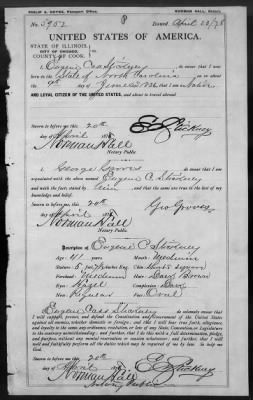 PHILIP A. HOYNE, Passport Office. NORMAN HALL, Notary.
No. 5952 Issued April 23/78
UNITED STATES OF AMERICA.
STATE OF ILLINOIS,
CITY OF CHICAGO,
COUNTY OF COOK.
I, Eugene Cass Stickney
State of North Carolina
AND LOYAL CITIZEN OF THE UNITED STATES, and about to travel abroad.
Sworn to before me this 20th
day of April
Norman Hall
Notary Public
E. C. Stickney
I, George Groves
acquainted with the above named Eugene C. Stickney
and with the facts stated by him and that the same are true to the best of
my knowledge and belief.
Sworn to before me this 20th
day of April
Norman Hall
Notary Public.
Geo Groves
Description of Eugene C Stickney
Age: 41 years Mouth: Medium
Stature: 5 feet inches Eng. Chin:
Forehead: Medium Hair: Dark Brown
Eyes: Hazel Complexion: Dark
Nose: Regular Face: Oval
I, Eugene Cass Stickney do solemnly swear that I
will support, protect, and defend the Constitution and Government of the United States
against all enemies, whether domestic or foreign; and that I will bear true faith, allegiance,
and loyalty to the same, any ordinance, resolution, or law of any State, Convention, or Legislature
to the contrary notwithstanding; and further, that I do this with a full determination,
pledge, and purpose, without any mental reservation or evasion whatsoever; and further, that I
will well and faithfully perform all the duties which may be required of me by law. So help me
God.
Sworn to before me this 20
day of April
Norman Hall
Notary Public
E. C. Stickney